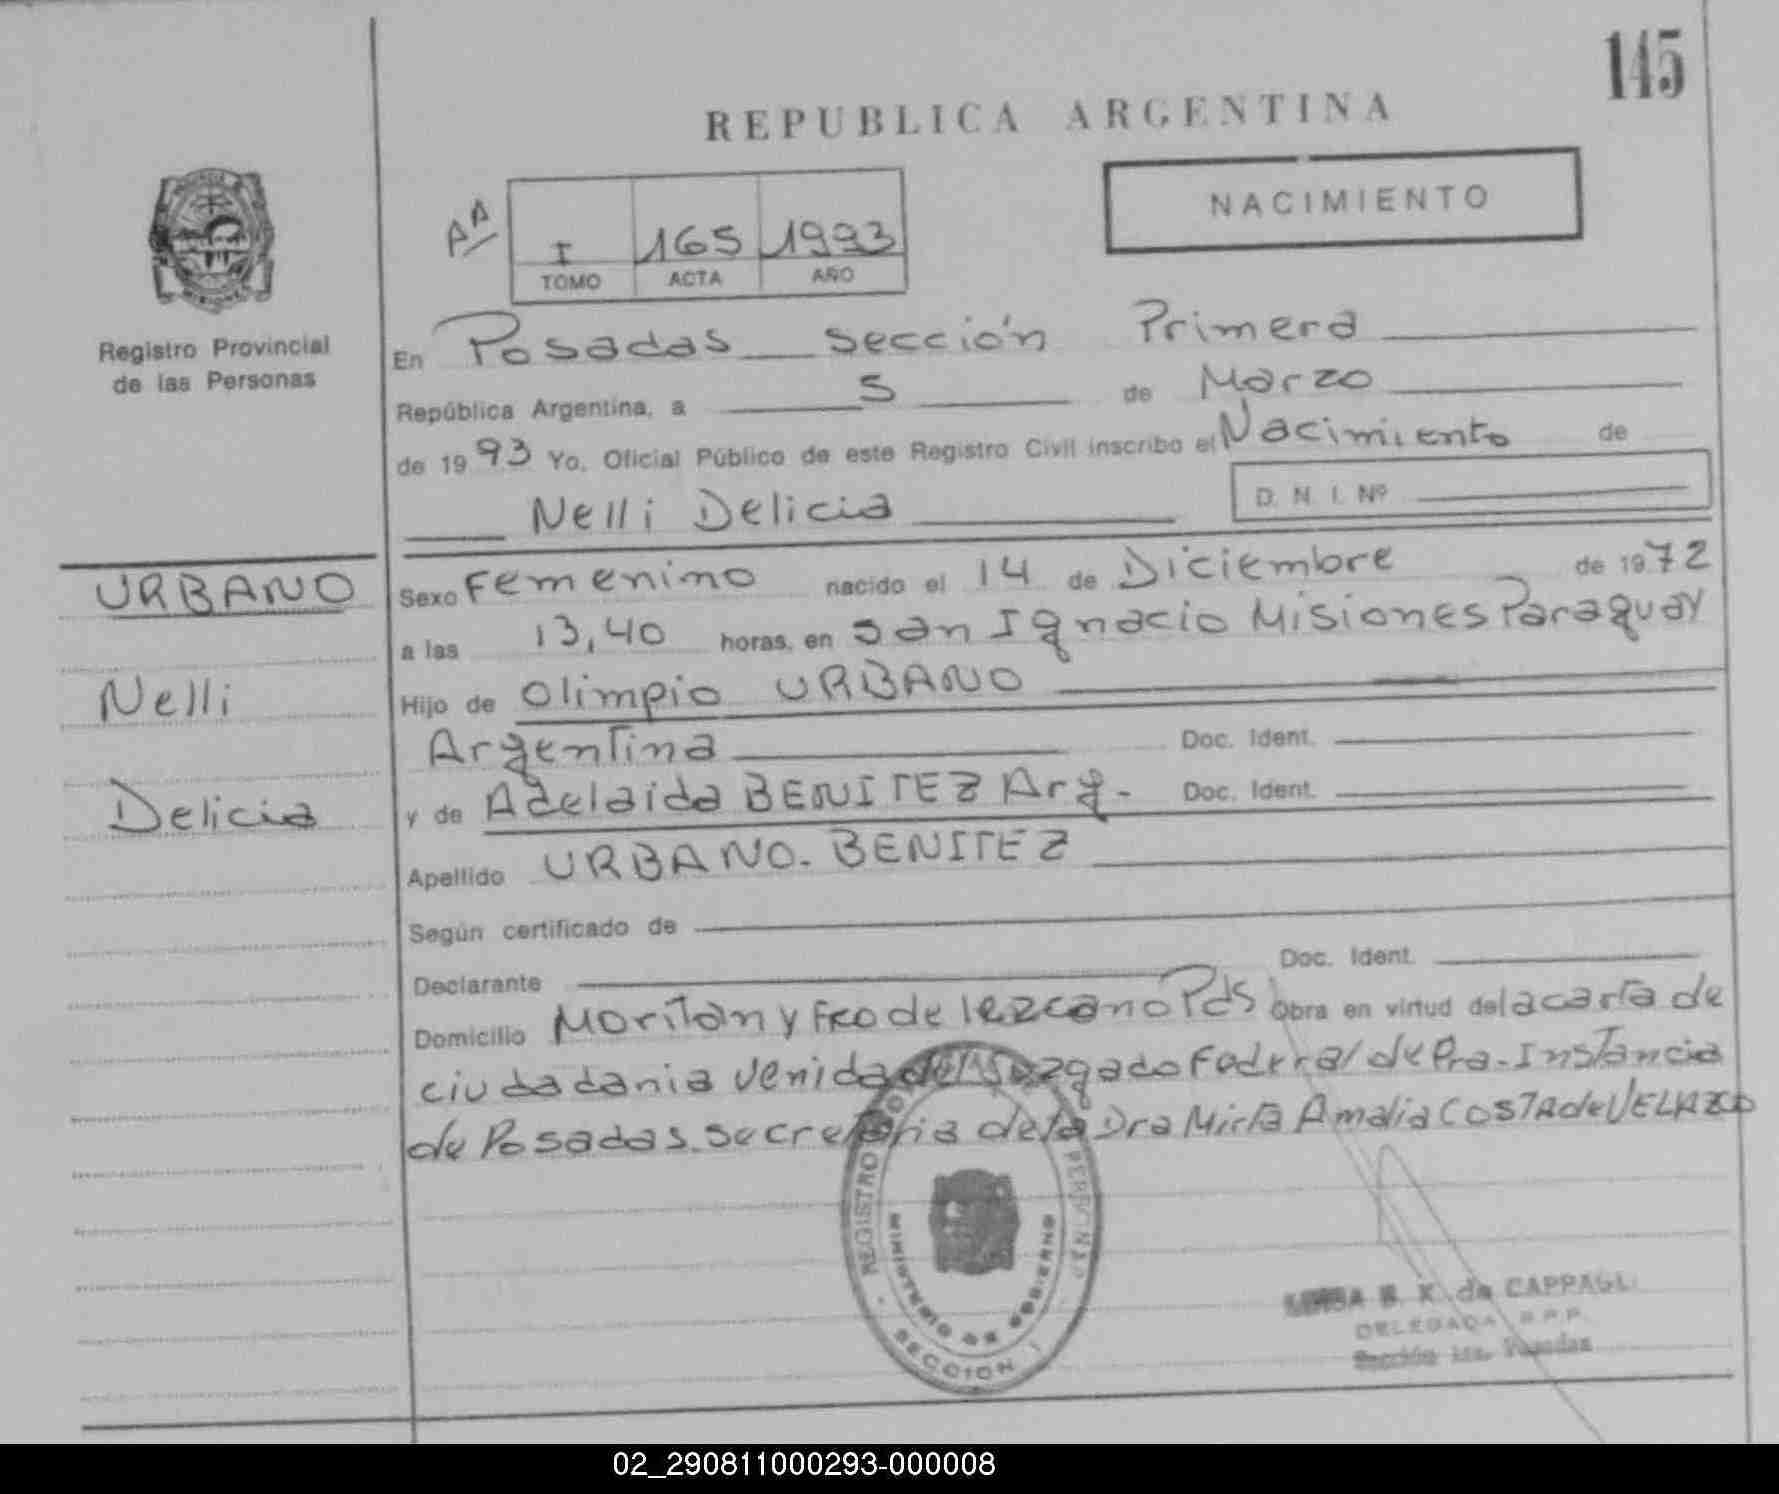 145
REPUBLICA ARGENTINA
NACIMIENTO
AA
I 165 1993
TOMO ACTA AÑO
MISIONES
Registro Provincial
de las Personas
En Posadas sección Primera
República Argentina, a 5 de Marzo
de 1993 Yo, Oficial Público de este Registro Civil inscribo el Nacimiento de
Nelli Delicia D. N. I. Nº
URBANO
Nelli
Delicia
Sexo Femenino nacido el 14 de Diciembre de 1972
a las 13,40 horas, en San Ignacio Misiones Paraguay
Hijo de Olimpio URBANO
Argentina Doc. Ident.
y de Adelaida BENITEZ Arg. Doc. Ident.
Apellido URBANO. BENITEZ
Según certificado de
Declarante Doc. Ident.
Domicilio Moritan y Fco de lezcano Pds Obra en virtud de la carta de
ciudadania venida del Juzgado Federal de Pra. Instancia
de Posadas. Secretaria de la Dra Mirta Amalia COSTA de VELAZCO
REGISTRO PERSONAS
MINISTERIO DE GOBIERNO
SECCION I
B. K. de CAPPAGLI
DELEGADA R.P.P.
Sección 1ra. Posadas
02_290811000293-000008